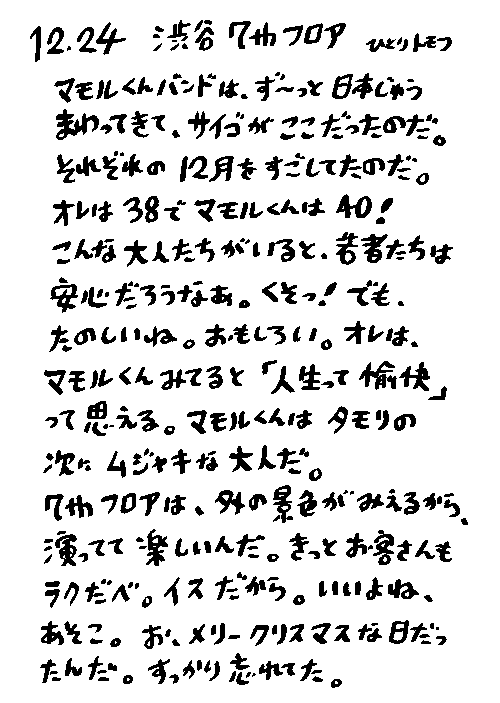 12.24 渋谷 7thフロア ひとりトモフ
マモルくんバンドは、ず〜っと日本じゅう
まわってきて、サイゴがここだったのだ。
それぞれの12月をすごしてたのだ。
オレは38でマモルくんは40！
こんな大人たちがいると、若者たちは
安心だろうなぁ。くそっ！でも、
たのしいね。おもしろい。オレは、
マモルくんみてると「人生って愉快」
って思える。マモルくんはタモリの
次にムジャキな大人だ。
7thフロアは、外の景色がみえるから、
演ってて楽しいんだ。きっとお客さんも
ラクだべ。イスだから。いいよね、
あそこ。お、メリークリスマスな日だっ
たんだ。すっかり忘れてた。